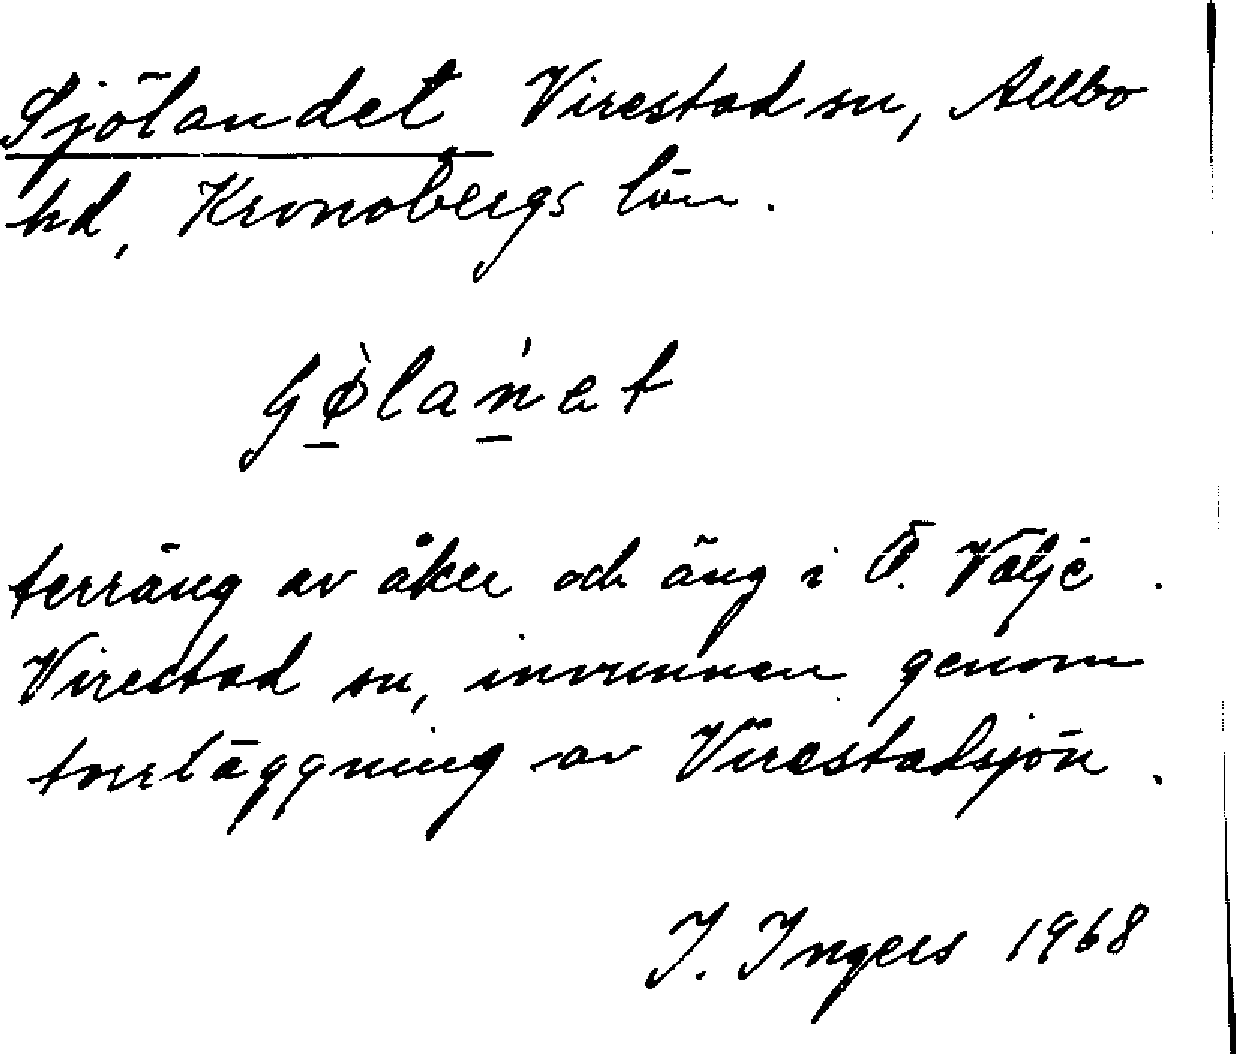 Sjölandet Virestad sn, Allbo
hd, Kronobergs län.
ʃø̠̀lań̠et
terräng av åker och äng i Ö. Välje
Virestad sn, invunnen genom
torrläggning av Virestadsjön.
I. Ingers 1968